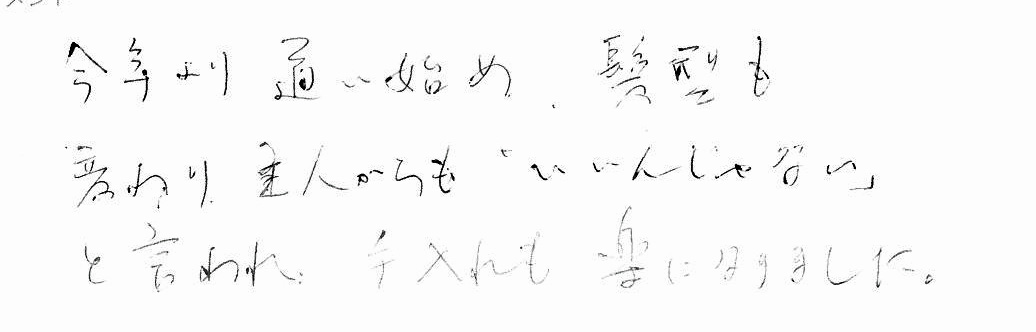 今年より通い始め、髪型も
変わり、主人からも「いいんじゃない」
と言われ、手入れも楽になりました。